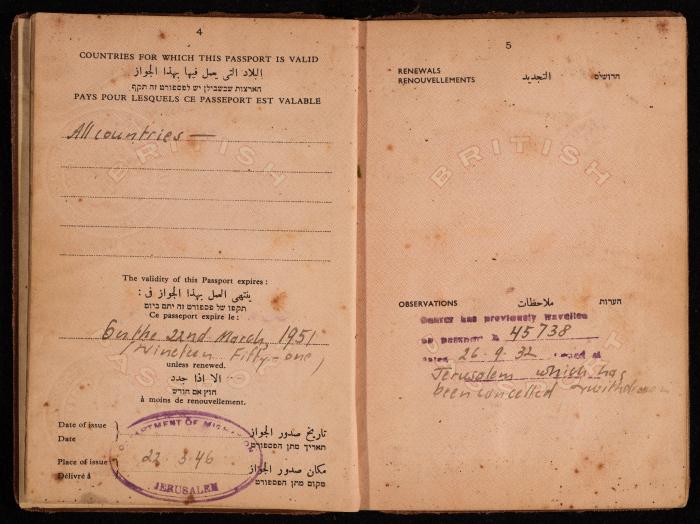 4
COUNTRIES FOR WHICH THIS PASSPORT IS VALID
البلاد التي يعمل فيها بهذا الجواز
הארצות שבשבילן יש לפספורט זה תקף
PAYS POUR LESQUELS CE PASSEPORT EST VALABLE
All countries —
BRITISH
The validity of this Passport expires:
ينتهي العمل بهذا الجواز في :
תקפו של פספורט זה יתם ביום
Ce passeport expire le:
On the 22nd March, 1951
(Nineteen Fifty-one)
unless renewed.
الا اذا جدد
חוץ אם חודש
à moins de renouvellement.
Date of issue
Date
تاريخ صدور الجواز
תאריך מתן הפספורט
DEPARTMENT OF MIGRATION
22.3.46
JERUSALEM
Place of issue
Délivré à
مكان صدور الجواز
מקום מתן הפספורט
5
RENEWALS
RENOUVELLEMENTS
التجديد
חדושים
BRITISH
OBSERVATIONS
ملاحظات
הערות
Bearer has previously travelled
on passport 45738
dated 26.9.32 issued at
Jerusalem which has
been cancelled & withdrawn